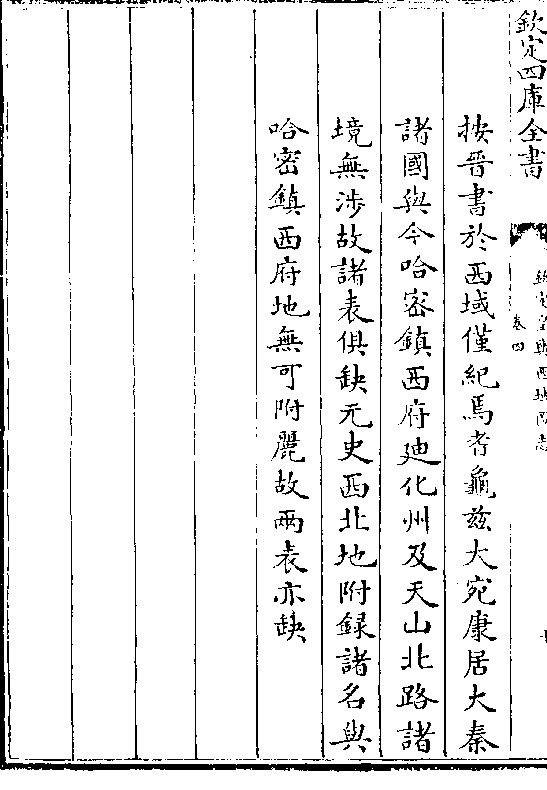 欽定四庫全書
欽定皇輿西域圖志
卷四
按晉書於西域僅紀焉耆龜兹大宛康居大秦
諸國與今哈密鎮西府廸化州及天山北路諸
境無涉故諸表俱缺元史西北地附録諸名與
哈密鎮西府地無可附麗故兩表亦缺